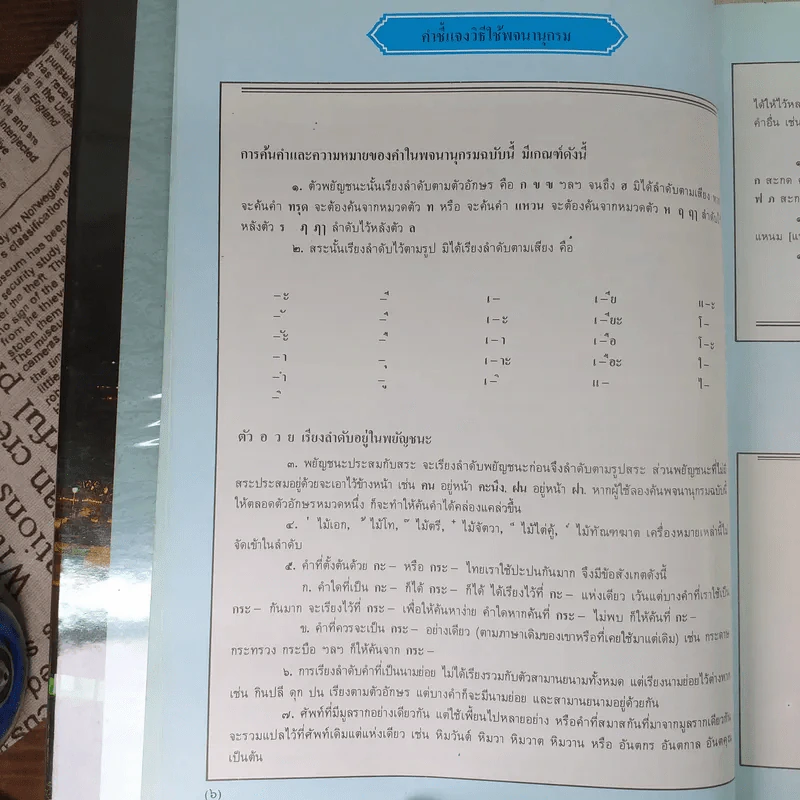 คำชี้แจงวิธีใช้พจนานุกรม
การค้นคำและความหมายของคำในพจนานุกรมฉบับนี้ มีเกณฑ์ดังนี้
๑. ตัวพยัญชนะนั้นเรียงลำดับตามตัวอักษร คือ ก ข ฃ ฯลฯ จนถึง ฮ มิได้ลำดับตามเสียง
จะค้นคำ ทรุด จะต้องค้นจากหมวดตัว ท หรือ จะค้นคำ แหวน จะต้องค้นจากหมวดตัว ห ฤ ฤๅ ลำดับไว้
หลังตัว ร ฦ ฦๅ ลำดับไว้หลังตัว ล
๒. สระนั้นเรียงลำดับไว้ตามรูป มิได้เรียงลำดับตามเสียง คือ
–ะ –ี เ– เ–ีย แ–ะ
–ั –ึ เ–ะ เ–ียะ โ–
–ัะ –ื เ–า เ–ือ โ–ะ
–า –ุ เ–าะ เ–ือะ ใ–
–ำ –ู เ–ิ แ– ไ–
–ิ
ตัว อ ว ย เรียงลำดับอยู่ในพยัญชนะ
๓. พยัญชนะประสมกับสระ จะเรียงลำดับพยัญชนะก่อนจึงลำดับตามรูปสระ ส่วนพยัญชนะที่ไม่มี
สระประสมอยู่ด้วยจะเอาไว้ข้างหน้า เช่น คน อยู่หน้า คะนึง, ฝน อยู่หน้า ฝา. หากผู้ใช้ลองค้นพจนานุกรมฉบับนี้
ให้ตลอดตัวอักษรหมวดหนึ่ง ก็จะทำให้ค้นคำได้คล่องแคล่วขึ้น
๔. ่ ไม้เอก, ้ ไม้โท, ๊ ไม้ตรี, ๋ ไม้จัตวา, ็ ไม้ไต่คู้, ์ ไม้ทัณฑฆาต เครื่องหมายเหล่านี้ไม่
จัดเข้าในลำดับ
๕. คำที่ตั้งต้นด้วย กะ – หรือ กระ – ไทยเราใช้ปะปนกันมาก จึงมีข้อสังเกตดังนี้
ก. คำใดที่เป็น กะ – ก็ได้ กระ – ก็ได้ ได้เรียงไว้ที่ กะ – แห่งเดียว เว้นแต่บางคำที่เราใช้เป็น
กระ – กันมาก จะเรียงไว้ที่ กระ – เพื่อให้ค้นหาง่าย คำใดหากค้นที่ กระ – ไม่พบ ก็ให้ค้นที่ กะ –
ข. คำที่ควรจะเป็น กระ – อย่างเดียว (ตามภาษาเดิมของเขาหรือที่เคยใช้มาแต่เดิม) เช่น กระดาษ
กระทรวง กระบือ ฯลฯ ก็ให้ค้นจาก กระ –
๖. การเรียงลำดับคำที่เป็นนามย่อย ไม่ได้เรียงรวมกับตัวสามานยนามทั้งหมด แต่เรียงนามย่อยไว้ต่างหาก
เช่น กินปลี ดุก ปน เรียงตามตัวอักษร แต่บางคำก็จะมีนามย่อย และสามานยนามอยู่ด้วยกัน
๗. ศัพท์ที่มีมูลรากอย่างเดียวกัน แต่ใช้เพี้ยนไปหลายอย่าง หรือคำที่สมาสกันที่มาจากมูลรากเดียวกัน
จะรวมแปลไว้ที่ศัพท์เดิมแต่แห่งเดียว เช่น หิมวันต์ หิมวา หิมวาต หิมวาน หรือ อันตกร อันตกาล อันตคุณ
เป็นต้น
(๖)
ได้ให้ไว้หล
คำอื่น เช่น
ก สะกด
ฟ ภ สะก
แหนม [แห